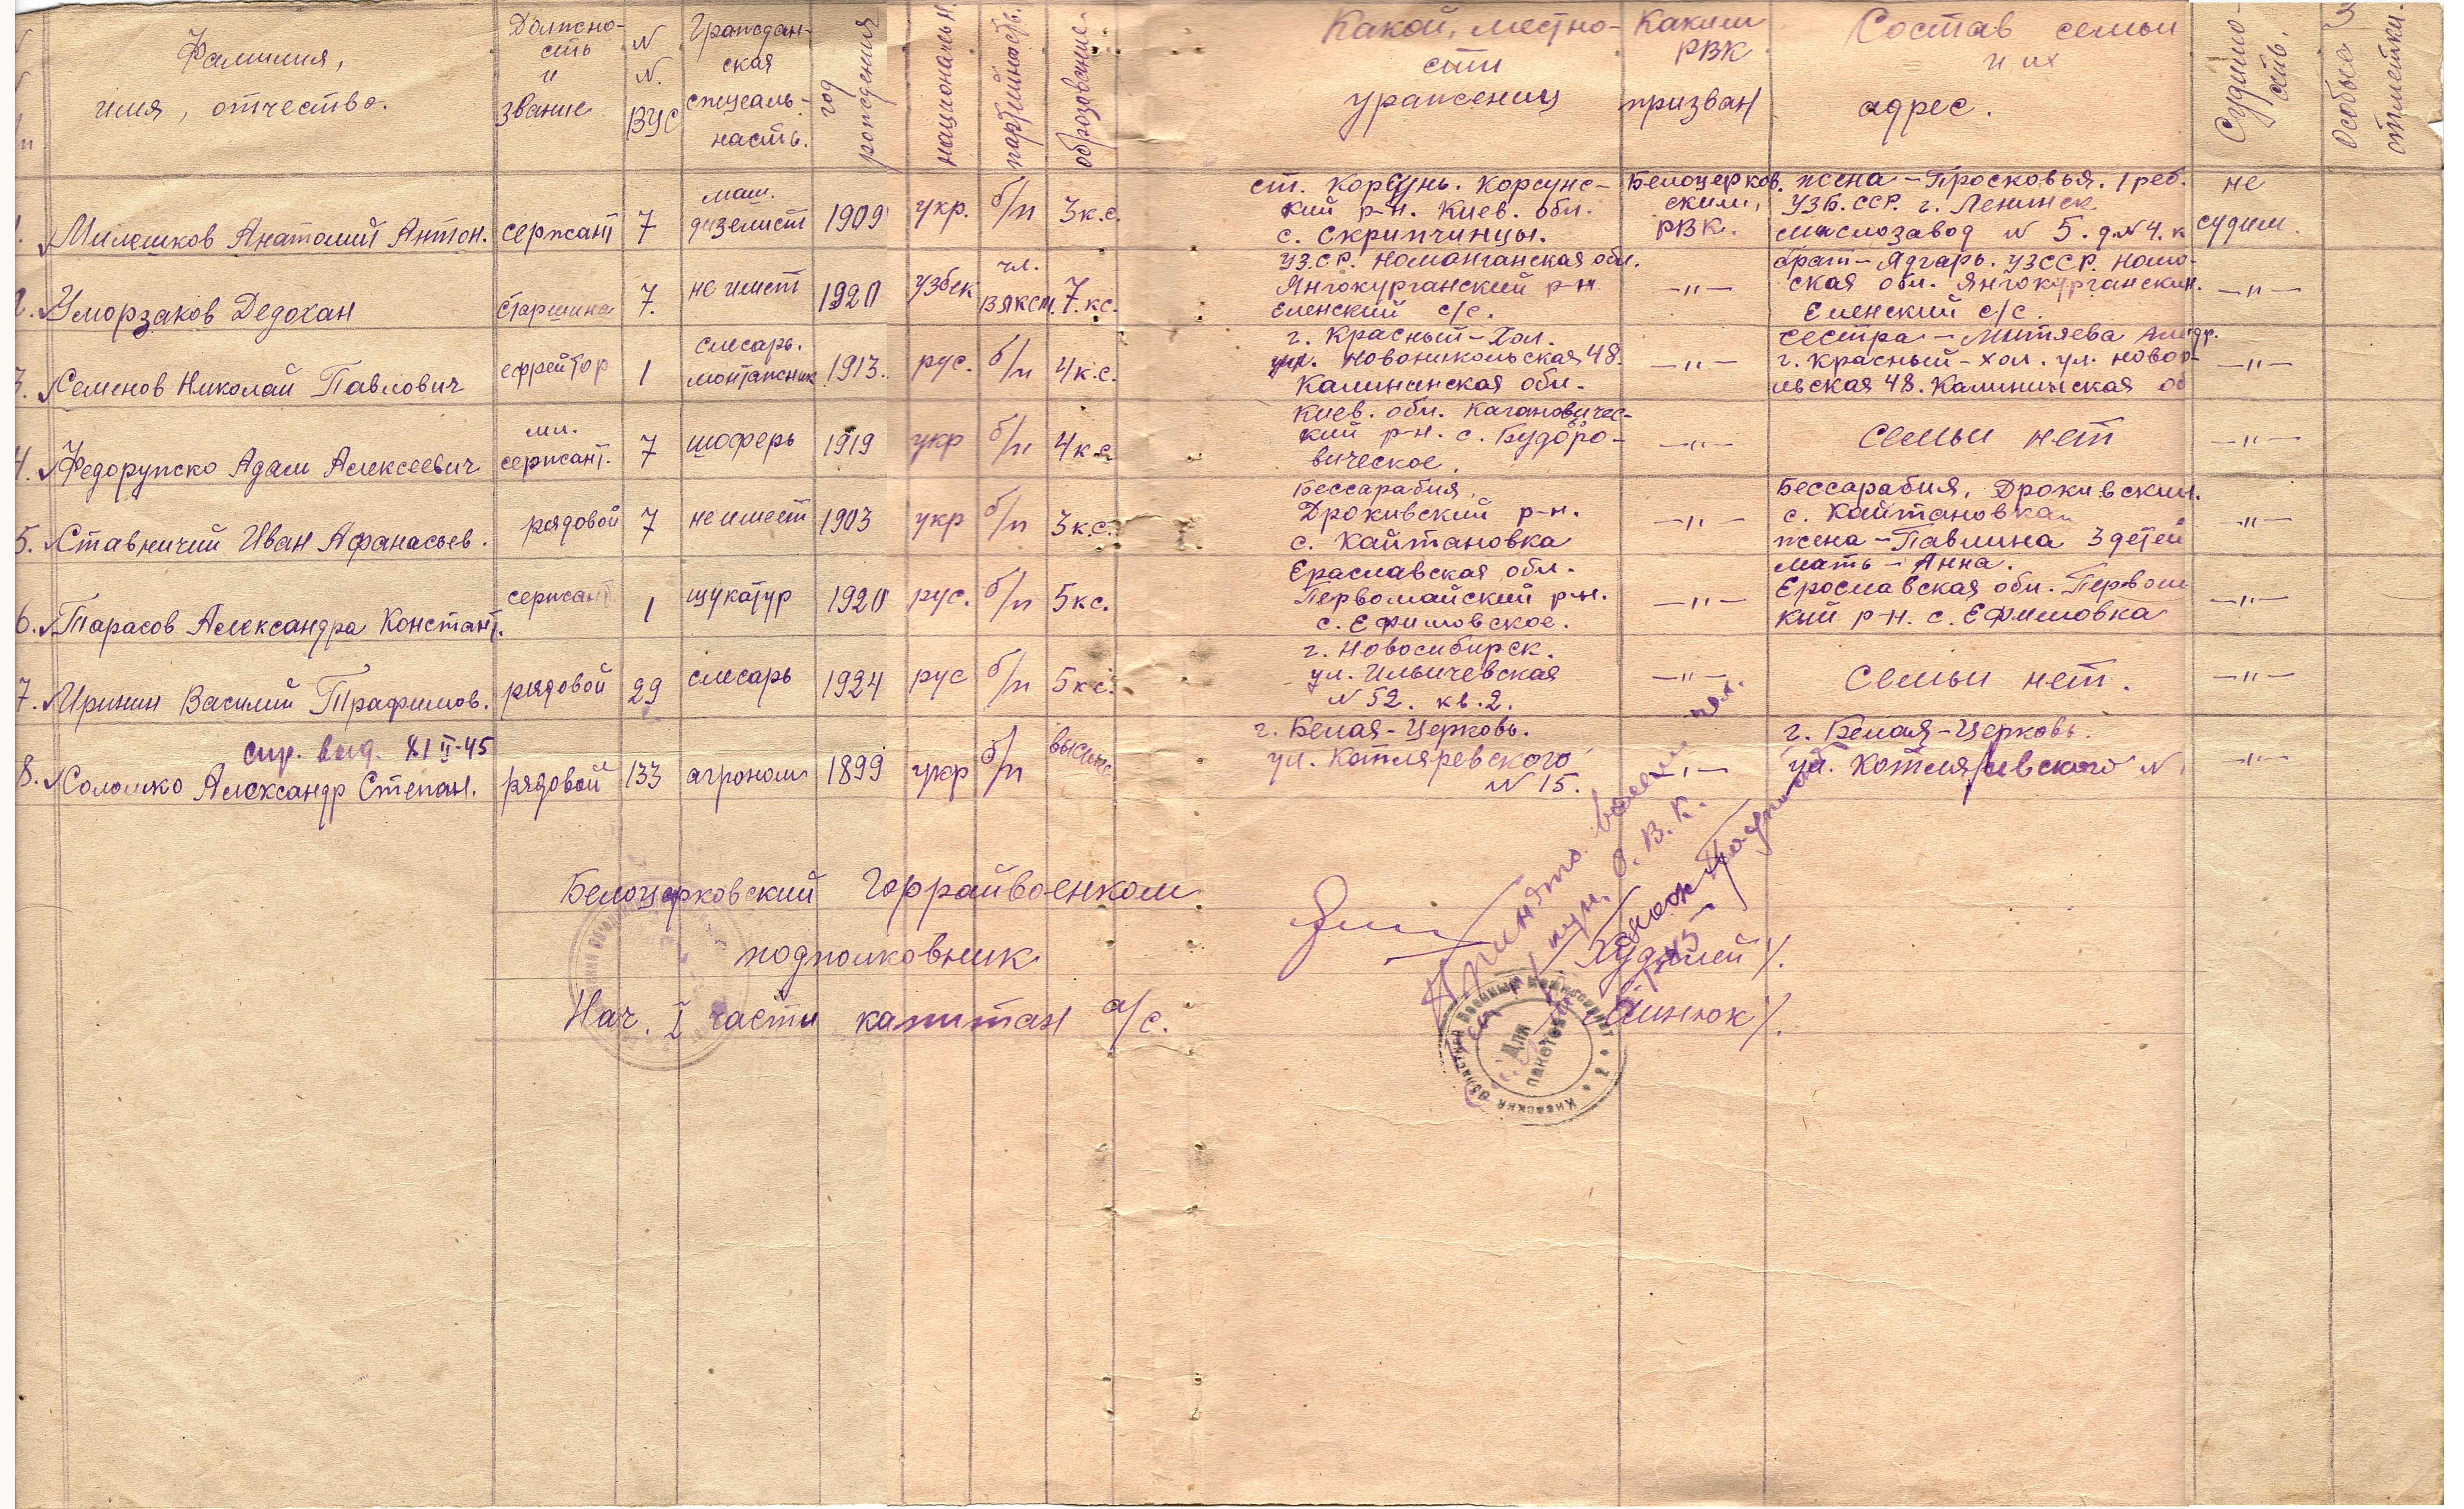 Фамилия,
имя, отчество.
Должно-
сть
и
звание
N
N.
ВУС
Граждан-
ская
спцеаль-
насть.
год
рождения
национальн.
партийность.
оброзование.
Какой, местно-
сти
уражениц
Каким
РВК
призван
Состав семьи
и их
адрес.
Судимо-
сть.
Особые
отметки.
1. Милешков Анатолий Антон. сержант 7 маш.
дизелист 1909 укр. б/п 3к.с.
ст. Корсунь. Корсунс-
кий р-н. Киев. обл.
с. Скрипчинцы.
Белоцерков.
ским,
РВК.
жена - Просковья. 1 реб.
УЗБ.ССР. г. Ленинск
маслозавод N 5. д.N4. к
не
судим.
2. Уморзаков Дедохан старшина 7. не имеет 1920 узбек чл.
ВЛКСМ. 7.кс.
УЗ.СР. Номанганская обл.
Янгокурганский р-н
Еленский с/с.
-"-
брат - Ядгарь. УЗССР. Номо-
ская обл. Янгокурганский.
Еленский с/с.
-"-
3. Семенов Николай Павлович ефрейтор 1 слесарь.
монтажник 1913. рус. б/п 4к.с.
г. Красный-Хол.
ул. Новоникольская 48.
Калининская обл.
-"-
сестра - Митяева
г. Красный-хол. ул. Новоп-
льская 48. Калининская об
-"-
4. Федорупско Адам Алексеевич мл.
сержант. 7 шоферь 1919 укр б/п 4к.с
Киев. обл. Кагановичес-
кий р-н. с. Будоро-
вическое.
-"-
Семьи нет
-"-
5. Ставничий Иван Афанасьев. рядовой 7 не имеет 1903 укр б/п 3к.с.
Бессарабия,
Дрокивский р-н.
с. Кайтановка
-"-
Бессарабия, Дрокивский.
с. Кайтановка
жена - Павлина 3 детей
-"-
6. Тарасов Александра Констант. сержант 1 щукатур 1920 рус. б/п 5кс.
Ераславская обл.
Первомайский р-н.
с. Ефимовское.
-"-
мать - Анна.
Ерославская обл. Первом
кий р-н. с. Ефимовка
-"-
7. Иринин Василий Трафимов. рядовой 29 слесарь 1924 рус б/п 5кс.
г. Новосибирск.
ул. Ильичевская
N 52. кв. 2.
-"-
Семьи нет.
-"-
спр. выд. XI II-45
8. Соломко Александр Степан. рядовой 133 агроном 1899 укр б/п высшие
г. Белая-Церковь.
ул. Котляревского
N 15.
-"-
г. Белая-Церковь.
ул. Котляревского N
-"-
Белоцерковский Горрайвоенком
подполковник
/Худолей/.
Нач. I части капитан а/с.
/Минюк/.
Принято восемь чел.
Киевский Областной Военный Комиссариат * 2 *
Для
пакетов